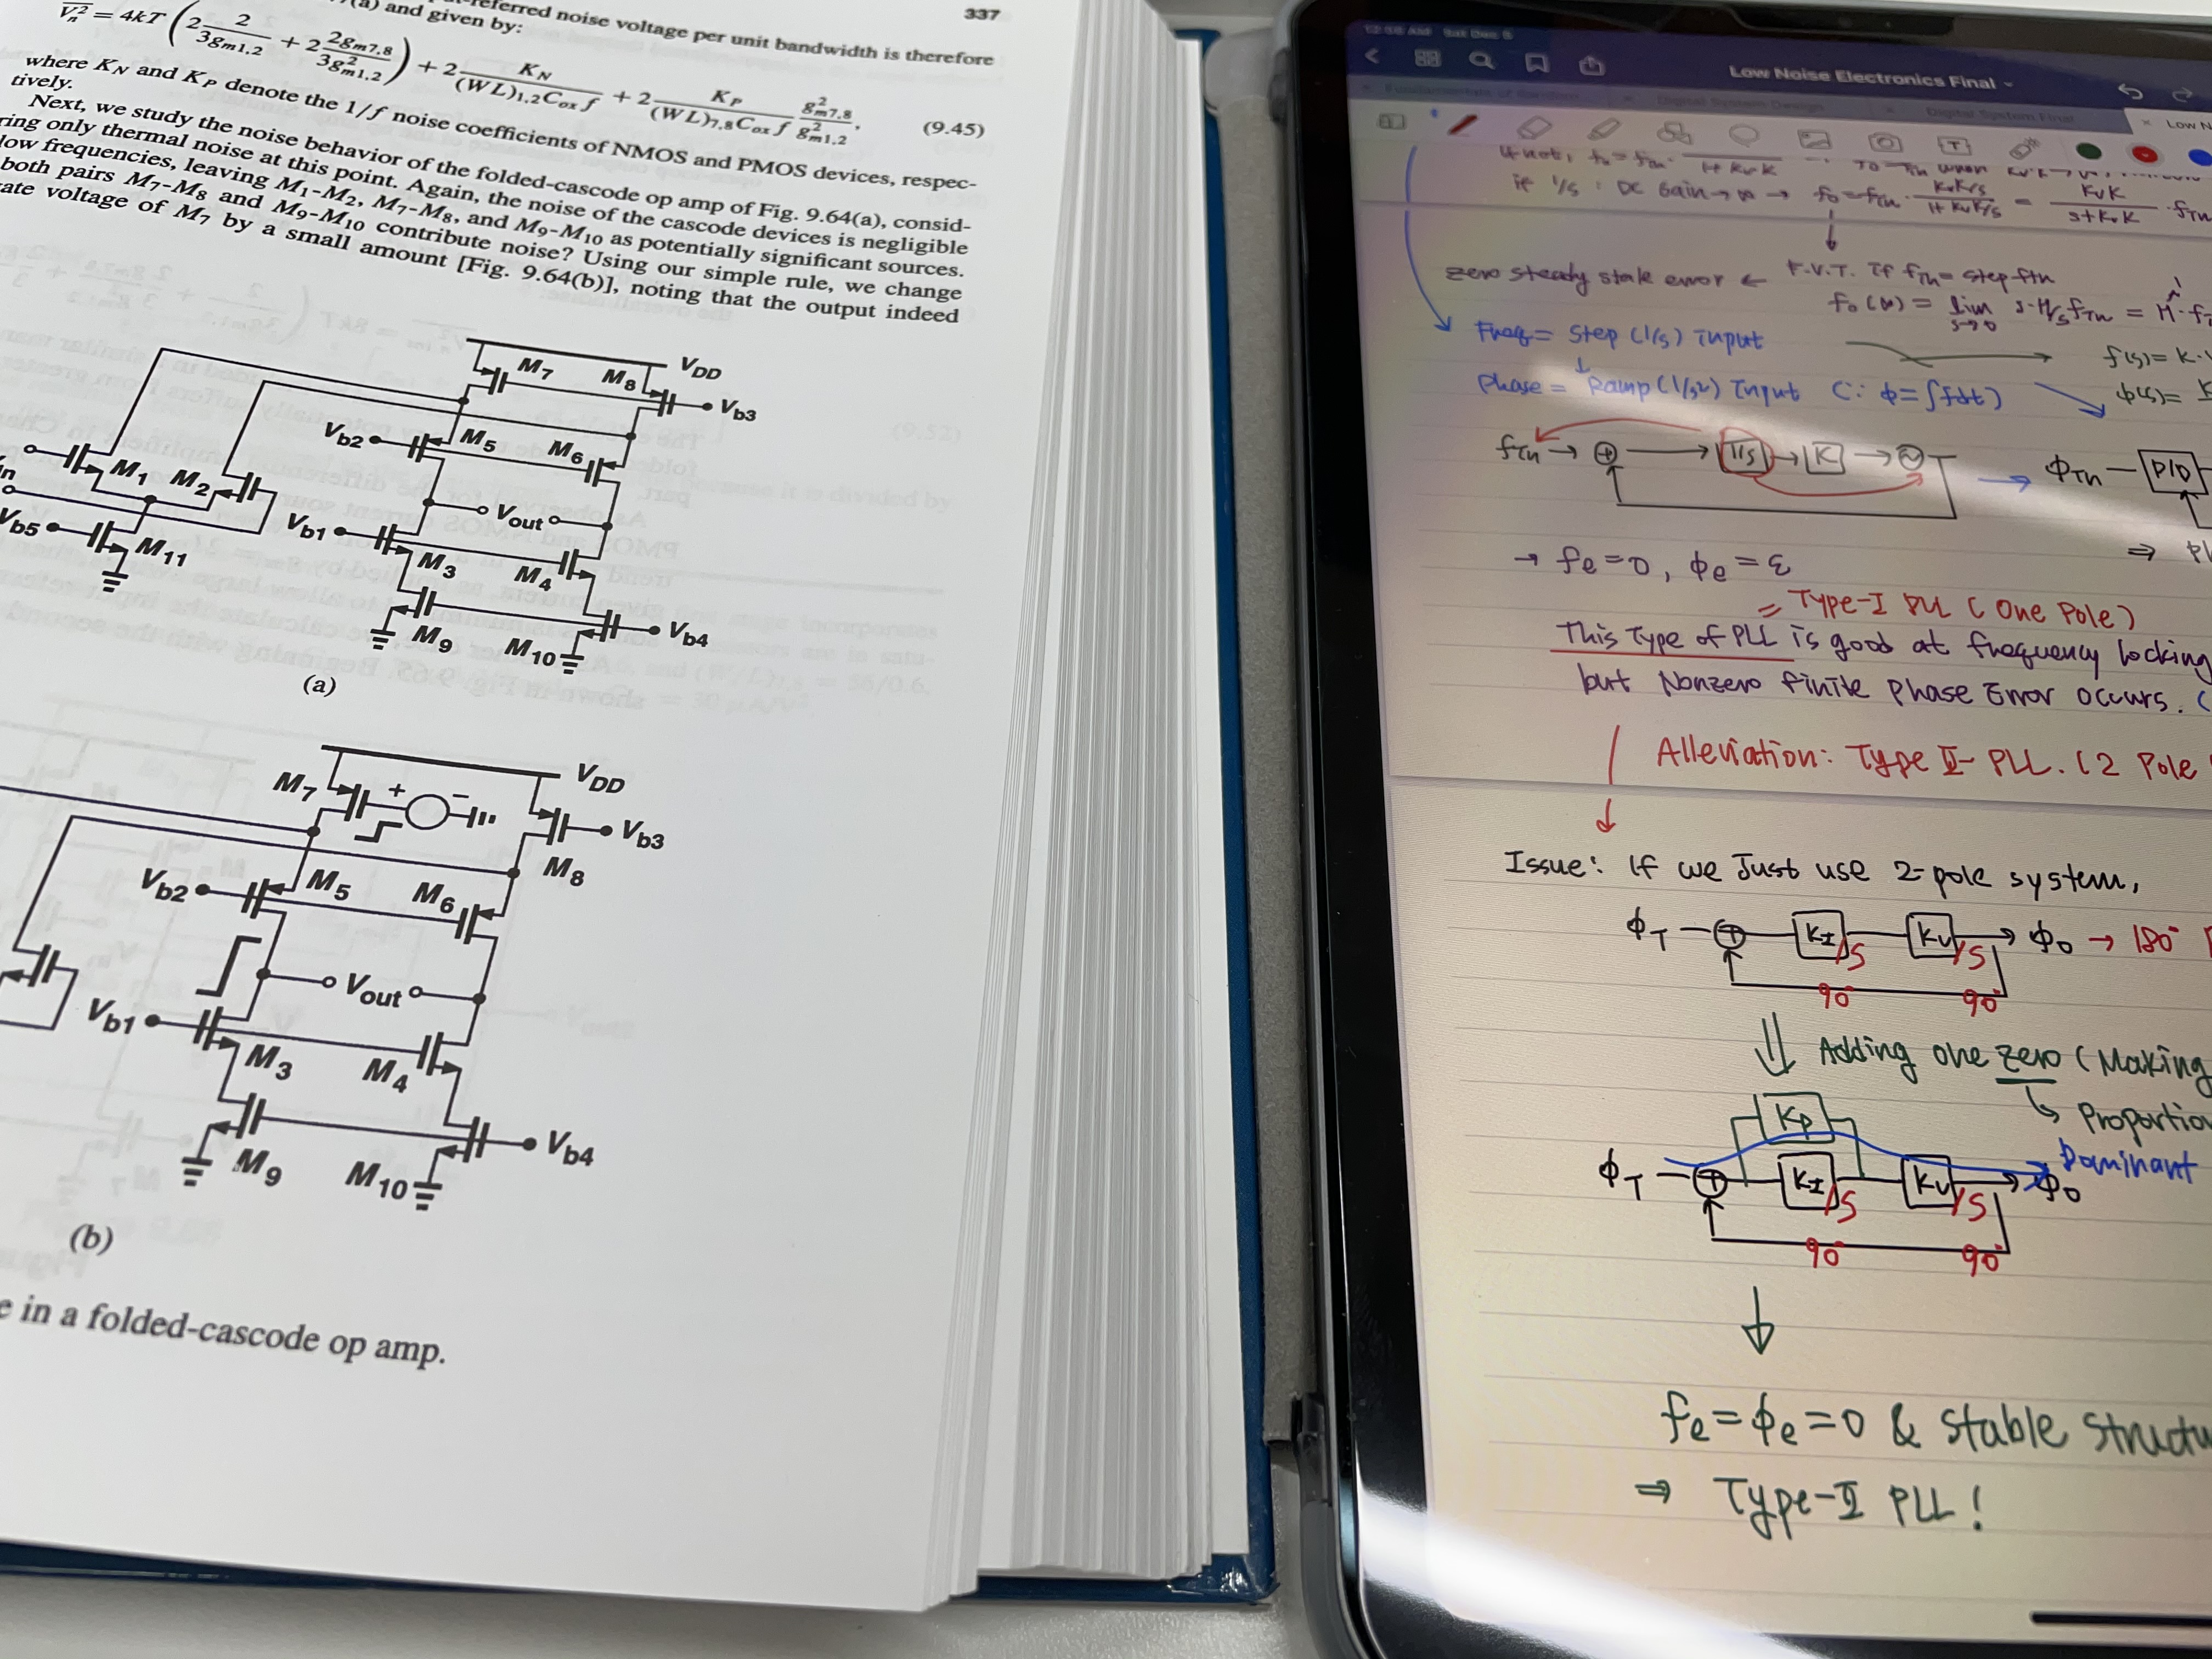 337
referred noise voltage per unit bandwidth is therefore
(a) and given by:
V_n^2 = 4kT (2 2/3g_m1,2 + 2 2g_m7,8/3g_m1,2^2) + 2 K_N/(WL)_1,2 C_ox f + 2 K_P/(WL)_7,8 C_ox f g_m7,8^2/g_m1,2^2, (9.45)
where K_N and K_P denote the 1/f noise coefficients of NMOS and PMOS devices, respec-
tively.
Next, we study the noise behavior of the folded-cascode op amp of Fig. 9.64(a), consid-
ring only thermal noise at this point. Again, the noise of the cascode devices is negligible
low frequencies, leaving M1-M2, M7-M8, and M9-M10 as potentially significant sources.
both pairs M7-M8 and M9-M10 contribute noise? Using our simple rule, we change
ate voltage of M7 by a small amount [Fig. 9.64(b)], noting that the output indeed
VDD
M7 M8
Vb3
Vb2 M5 M6
M1 M2
in
Vb1 Vout
Vb5 M11
M3 M4
M9 M10 Vb4
(a)
VDD
M7 + −
Vb3
M8
Vb2 M5 M6
Vout
Vb1 M3 M4
M9 M10 Vb4
(b)
e in a folded-cascode op amp.
Low Noise Electronics Final
Digital System Design
Digital System Final
Low N
If not, fo = fin ·
if 1/s : DC Gain → ∞ → fo = fin · KvK/s / 1+KvK/s = KvK / s+KvK · fin
zero steady state error ← F.V.T. if fin = step ftn
fo(∞) = lim s→0 s·H/s fin = H · f
Freq = Step (1/s) input
f(s) = K·
Phase = Ramp (1/s²) Input (∵ ϕ = ∫fdt)
ϕ(s) =
fin → + → 1/s → K → ~
→ ϕin — P/D
→ fe = 0, ϕe = ε
= Type-I PLL (One Pole)
This Type of PLL is good at frequency locking
but Nonzero finite phase Error occurs. (
Alleviation: Type II- PLL. (2 Pole
Issue: If we Just use 2-pole system,
ϕI — + — KI/S — KV/S → ϕo → 180°
90° 90°
Adding one zero (Making
Proportion
KP
Dominant
ϕI — + — KI/S — KV/S → ϕo
90° 90°
fe = ϕe = 0 & stable structu
⇒ Type-II PLL!